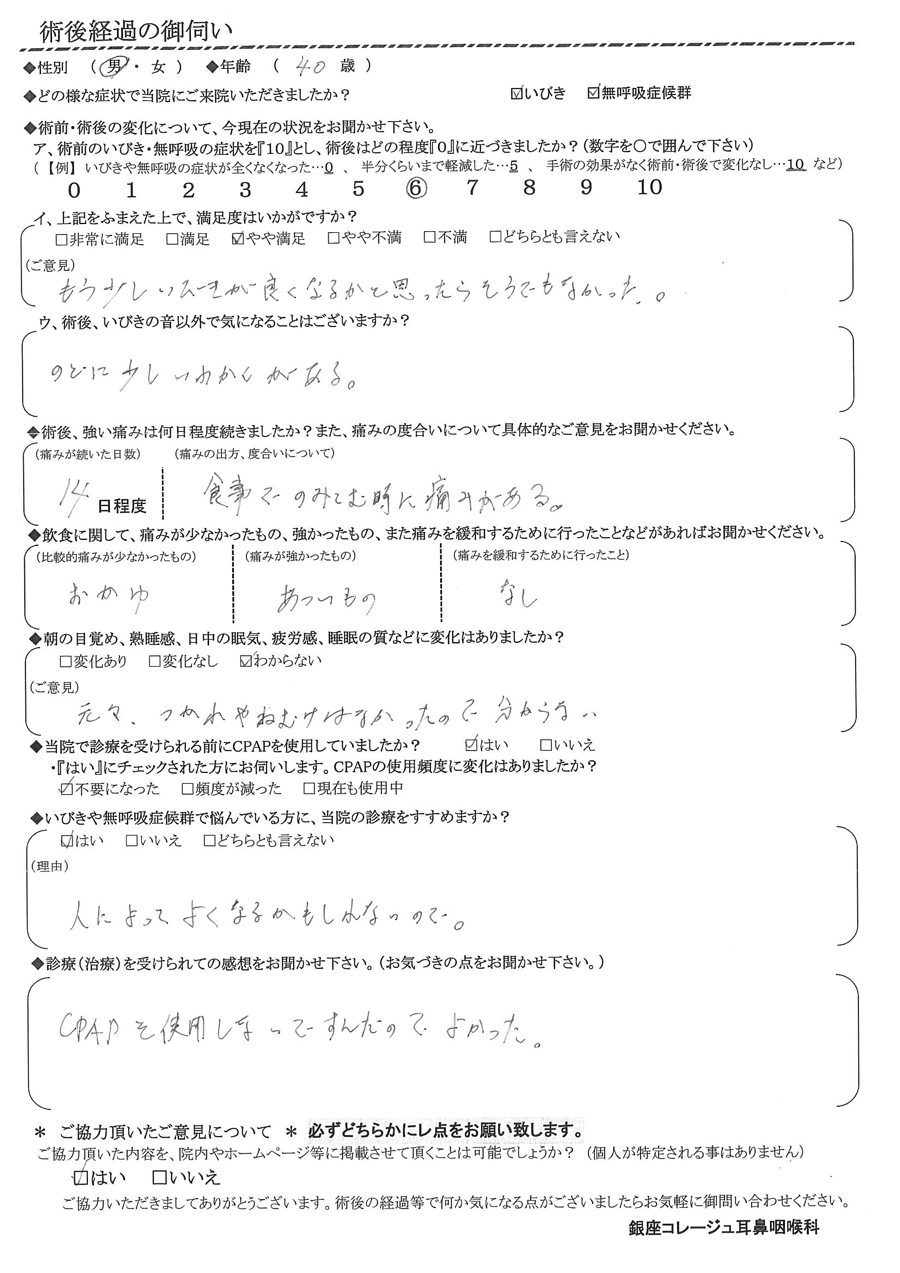 術後経過の御伺い
◆性別 （ 男 ・ 女 ） ◆年齢 （ 40 歳 ）
◆どの様な症状で当院にご来院いただきましたか？ ☑いびき ☑無呼吸症候群
◆術前・術後の変化について、今現在の状況をお聞かせ下さい。
ア、術前のいびき・無呼吸の症状を『10』とし、術後はどの程度『0』に近づきましたか？（数字を○で囲んで下さい）
（【例】いびきや無呼吸の症状が全くなくなった…0 、 半分くらいまで軽減した…5 、 手術の効果がなく術前・術後で変化なし…10 など）
0 1 2 3 4 5 ⑥ 7 8 9 10
イ、上記をふまえた上で、満足度はいかがですか？
□非常に満足 □満足 ☑やや満足 □やや不満 □不満 □どちらとも言えない
（ご意見）
もう少しいびきが良くなるかと思ったらそうでもなかった。
ウ、術後、いびきの音以外で気になることはございますか？
のどに少しいわかんがある。
◆術後、強い痛みは何日程度続きましたか？また、痛みの度合いについて具体的なご意見をお聞かせください。
（痛みが続いた日数） （痛みの出方、度合いについて）
14 日程度 食事でのみこむ時に痛みがある。
◆飲食に関して、痛みが少なかったもの、強かったもの、また痛みを緩和するために行ったことなどがあればお聞かせください。
（比較的痛みが少なかったもの） （痛みが強かったもの） （痛みを緩和するために行ったこと）
おかゆ あついもの なし
◆朝の目覚め、熟睡感、日中の眠気、疲労感、睡眠の質などに変化はありましたか？
□変化あり □変化なし ☑わからない
（ご意見）
元々、つかれやねむけはなかったので分からない
◆当院で診療を受けられる前にCPAPを使用していましたか？ ☑はい □いいえ
・『はい』にチェックされた方にお伺いします。CPAPの使用頻度に変化はありましたか？
☑不要になった □頻度が減った □現在も使用中
◆いびきや無呼吸症候群で悩んでいる方に、当院の診療をすすめますか？
☑はい □いいえ □どちらとも言えない
（理由）
人によってよくなるかもしれないので。
◆診療（治療）を受けられての感想をお聞かせ下さい。（お気づきの点をお聞かせ下さい。）
CPAPを使用しないですんだのでよかった。
＊ ご協力頂いたご意見について ＊ 必ずどちらかにレ点をお願い致します。
ご協力頂いた内容を、院内やホームページ等に掲載させて頂くことは可能でしょうか？（個人が特定される事はありません）
☑はい □いいえ
ご協力いただきましてありがとうございます。術後の経過等で何か気になる点がございましたらお気軽に御問い合わせください。
銀座コレージュ耳鼻咽喉科